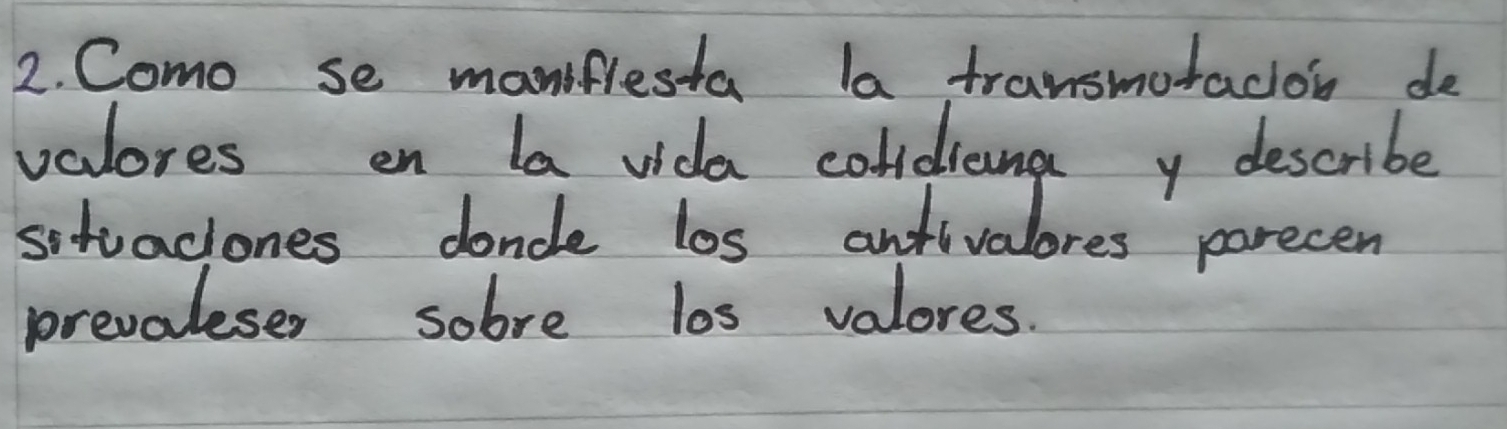 2. Como se manifiesta la transmutación de
valores en la vida cotidiana y describe
situaciones donde los antivalores parecen
prevaleser sobre los valores.